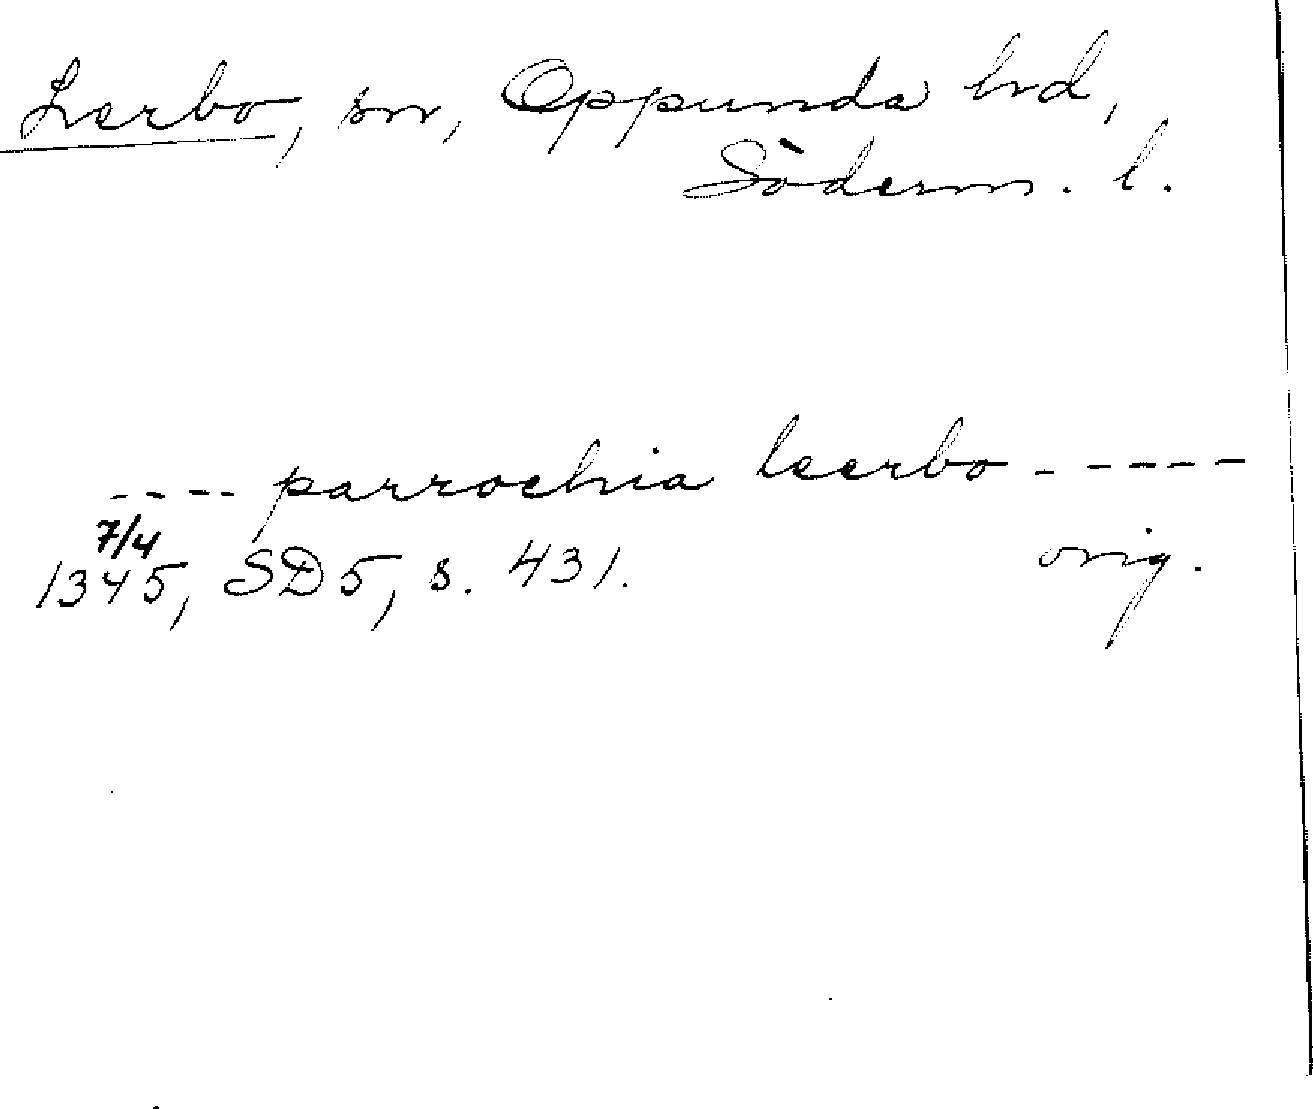 Lerbo, sn, Oppunda hrd,
Söderm. l.
---- parrochia leerbo -----
7/4
1345, SD5, s. 431. orig.